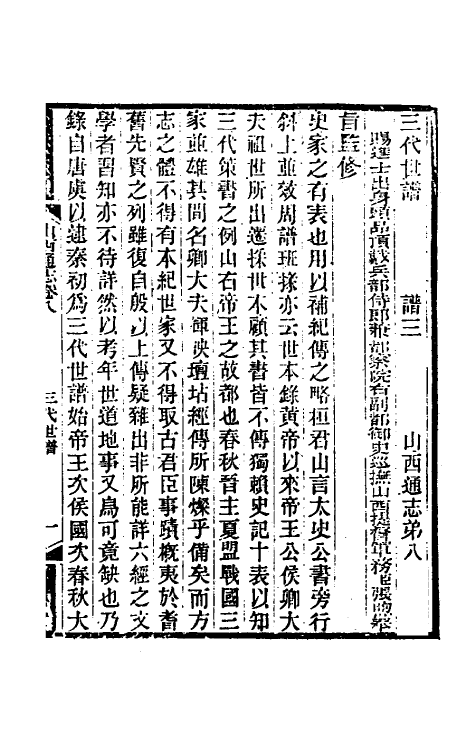 三代世譜 譜三 山西通志弟八
賜進士出身頭品頂戴兵部侍郎兼都察院右副都御史巡撫山西提督軍務臣張煦奉
旨監修
史家之有表也用以補紀傳之略桓君山言太史公書旁行
斜上並效周譜班掾亦云世本錄黃帝以來帝王公侯卿大
夫祖世所出遷掾世不顧其書皆不傳獨賴史記十表以知
三代策書之例山右帝王之故都也春秋晉主夏盟戰國三
家並雄其間名卿大夫輝映壇坫經傳所陳燦乎備矣而方
志之體不得有本紀世家又不得取古君臣事蹟概夷於耆
舊先賢之列雖復自殷以上傳疑雜出非所能詳六經之文
學者習知亦不待詳然以考年世道地事又烏可竟缺也乃
錄自唐虞以逮秦初為三代世譜始帝王次侯國次春秋大
山西通志卷八 三代世譜 一